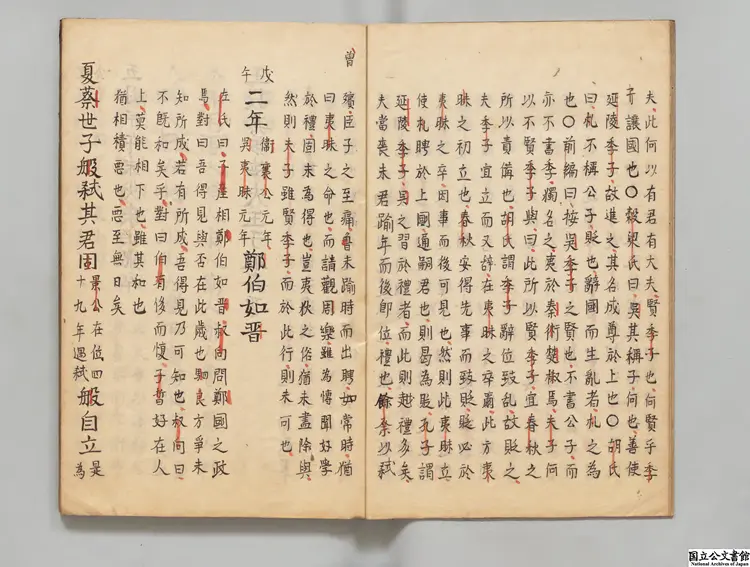 夫此何以有君有大夫賢季子也何賢乎季
子讓國也〇穀梁氏曰吳其稱子何也善使
延陵季子故進之其名成尊於上也〇胡氏
曰札不稱公子貶也辭國而生亂者札之為
也〇前編曰按吳季子之賢也不書公子而
亦不書季獨名之夷於秦術楚椒焉夫子何
以不賢季子與曰此所以賢季子宜春秋之
所以責備也胡氏謂季子辭位致亂故貶之
夫季子宜立而又辭在夷昧之卒爾此方夷
昧之初立也春秋安得先事而致貶貶必於
夷昧之卒因事而後可見也然則此夷昧立
使札聘於上國通嗣君也則曷為貶孔子謂
延陵季子吳之習於禮者而此則越禮多矣
夫當喪未君踰年而後卽位禮也餘祭以弒
殞臣子之至痛曾未踰時而出聘如常時猶
曾
曰夷昧之命也而請觀周樂雖為博聞好學
於禮固未為得也豈夷狄之俗猶未盡除與
然則夫子雖賢季子而於此行則未可也
戊午 二年 衞襄公元年 吳夷昧元年 鄭伯如晉
左氏曰子產相鄭伯如晉叔向問鄭國之政
焉對曰吾得見與否在此歲也駟良方爭未
知所成若有所成吾得見乃可知也叔向曰
不既和矣乎對曰伯有侈而愎子晳好在人
上莫能相下也雖其和也
猶相積惡也惡至無日矣
夏蔡世子般弒其君固 景公在位四十九年遇弒 般自立 是為
国立公文書館
National Archives of Japan